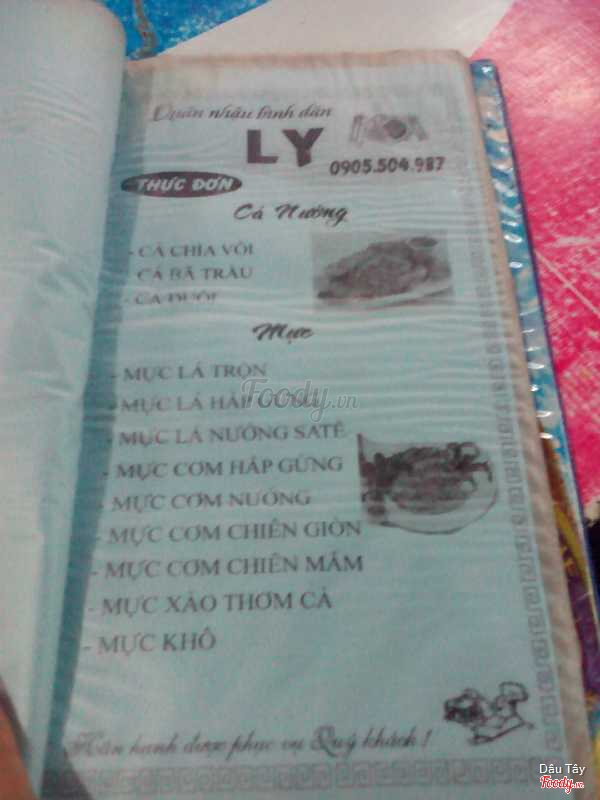 Quán nhậu bình dân
LY
0905.504.987
THỰC ĐƠN
Cá Nướng
- CÁ CHÌA VÔI
- CÁ BÃ TRẦU
- CÁ ĐUỐI
Mực
- MỰC LÁ TRỘN
- MỰC LÁ HẤP GỪNG
- MỰC LÁ NƯỚNG SATẾ
- MỰC CƠM HẤP GỪNG
- MỰC CƠM NƯỚNG
- MỰC CƠM CHIÊN GIÒN
- MỰC CƠM CHIÊN MẮM
- MỰC XÀO THƠM CÀ
- MỰC KHÔ
Hân hạnh được phục vụ Quý khách !
Foody.vn
Dâu Tây
Foody.vn